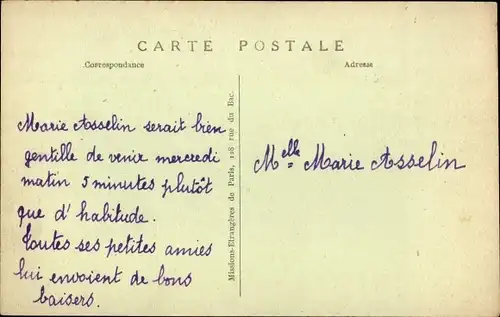 CARTE POSTALE
Correspondance
Adresse
Marie Asselin serait bien
gentille de venir mercredi
matin 5 minutes plutôt
que d'habitude.
Toutes ses petites amies
lui envoient de bons
baisers.
Missions-Etrangères de Paris, 128 rue du Bac.
Melle Marie Asselin